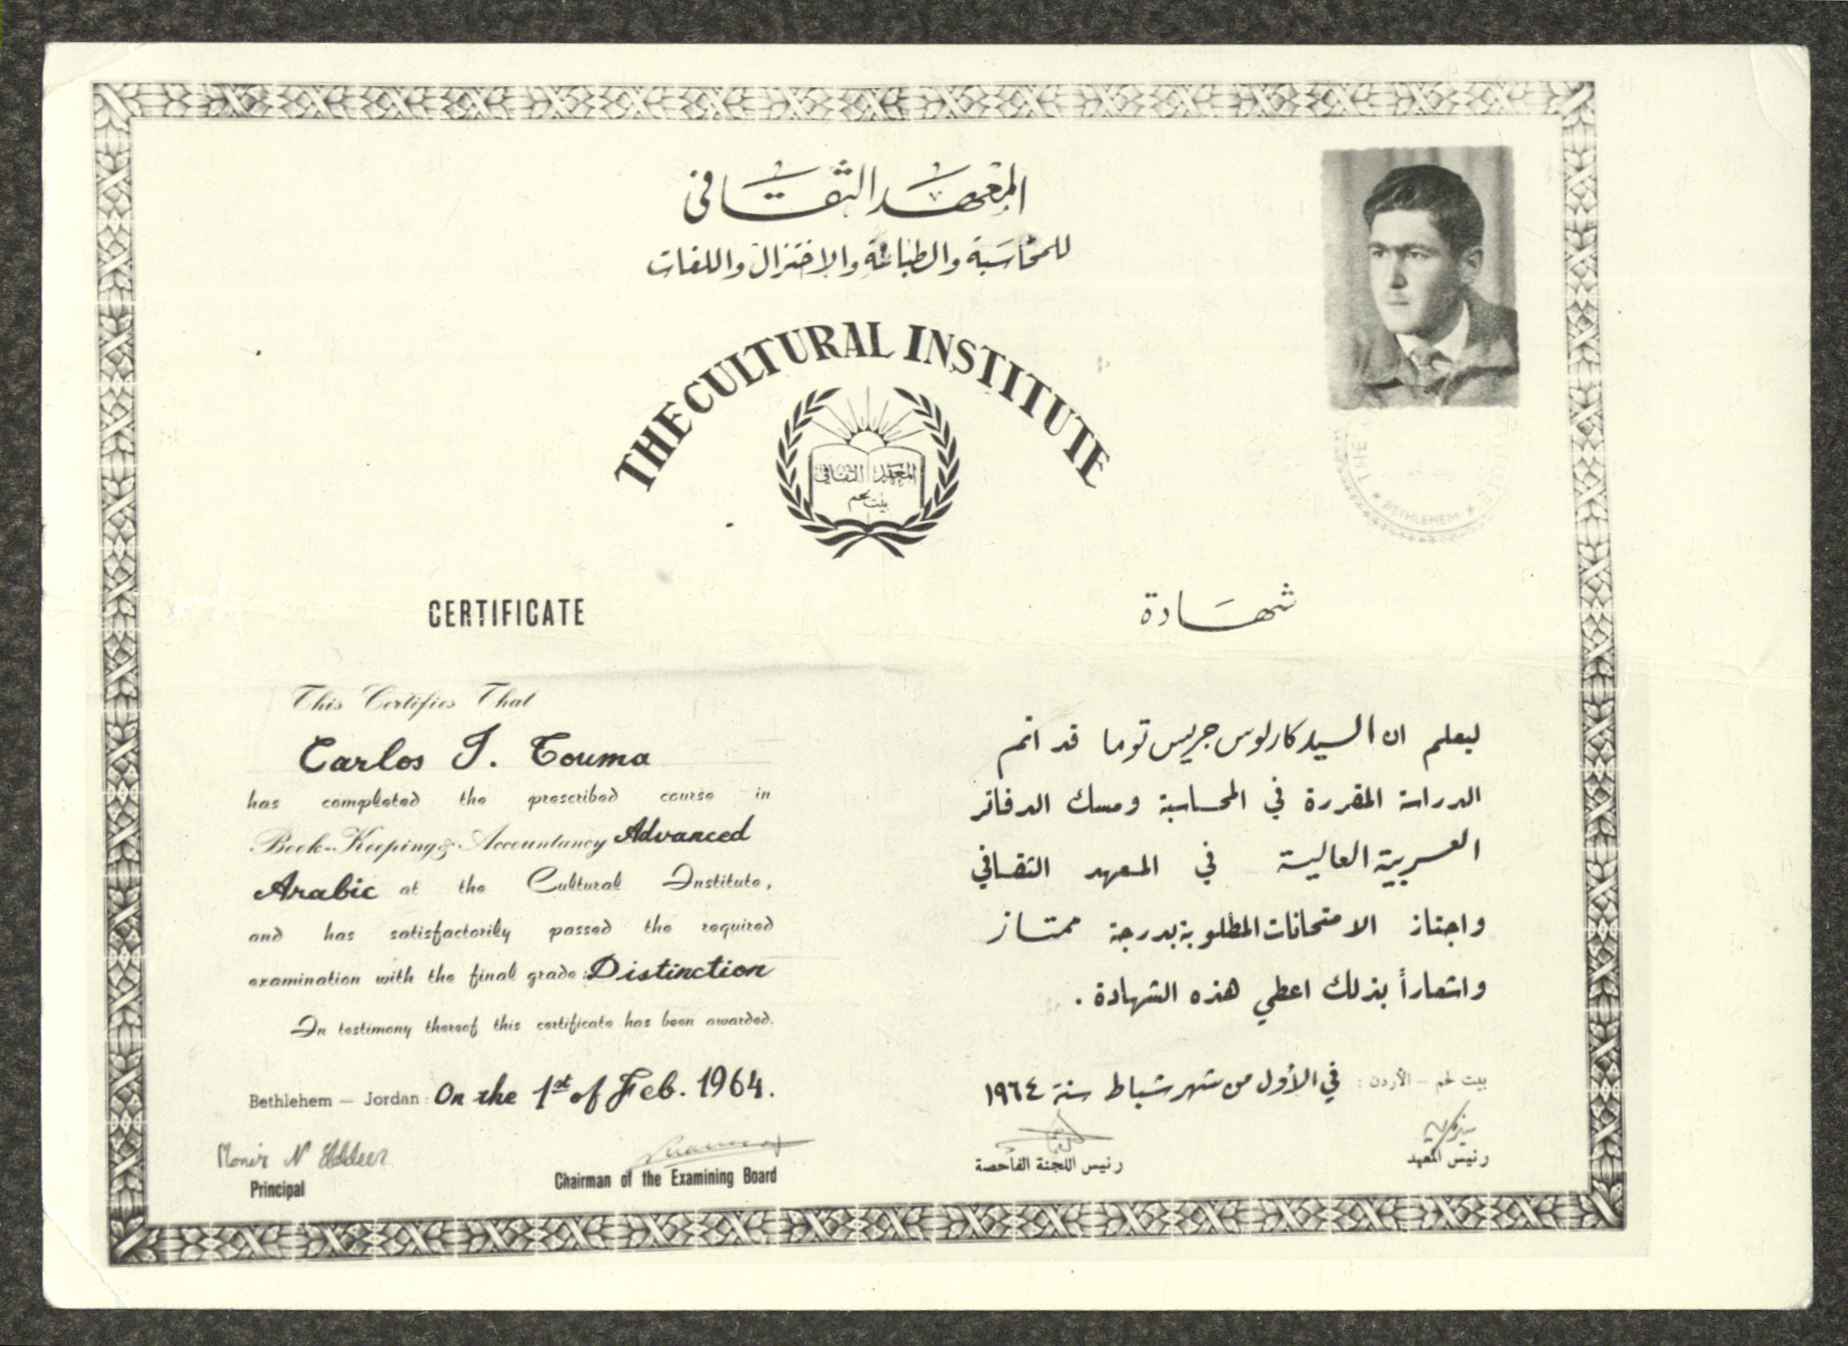 المعهد الثقافي
للمحاسبة والطباعة والاختزال واللغات
THE CULTURAL INSTITUTE
المعهد الثقافي
بيت لحم
THE
BETHLEHEM
CERTIFICATE
This Certifies That
Carlos J. Touma
has completed the prescribed course in
Book-Keeping & Accountancy Advanced
Arabic at the Cultural Institute,
and has satisfactorily passed the required
examination with the final grade: Distinction
In testimony thereof this certificate has been awarded.
Bethlehem — Jordan: On the 1st of Feb. 1964.
Principal
Chairman of the Examining Board
شهادة
ليعلم ان السيد كارلوس جريس توما قد اتم
الدراسة المقررة في المحاسبة ومسك الدفاتر
العربية العالية في المعهد الثقافي
واجتاز الامتحانات المطلوبة بدرجة ممتاز
واشعاراً بذلك اعطي هذه الشهادة .
بيت لحم – الأردن : في الأول من شهر شباط سنة ١٩٦٤
رئيس المعهد
رئيس اللجنة الفاحصة